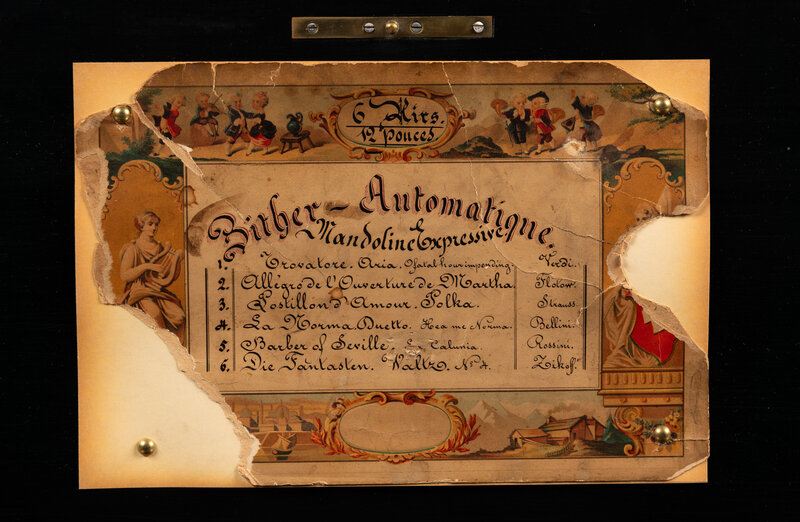 6 Airs.
12 pouces
Zither - Automatique.
& Mandoline Expressive
1. Trovatore. Aria. O fatal hour impending. Verdi.
2. Allegro de l'Ouverture de Martha. Flotow.
3. Postillon d'Amour. Polka. Strauss.
4. La Norma Duetto. Hea me Norma. Bellini.
5. Barber of Seville. La Calunia. Rossini.
6. Die Fantasten. Waltz. No 4. Zikoff.